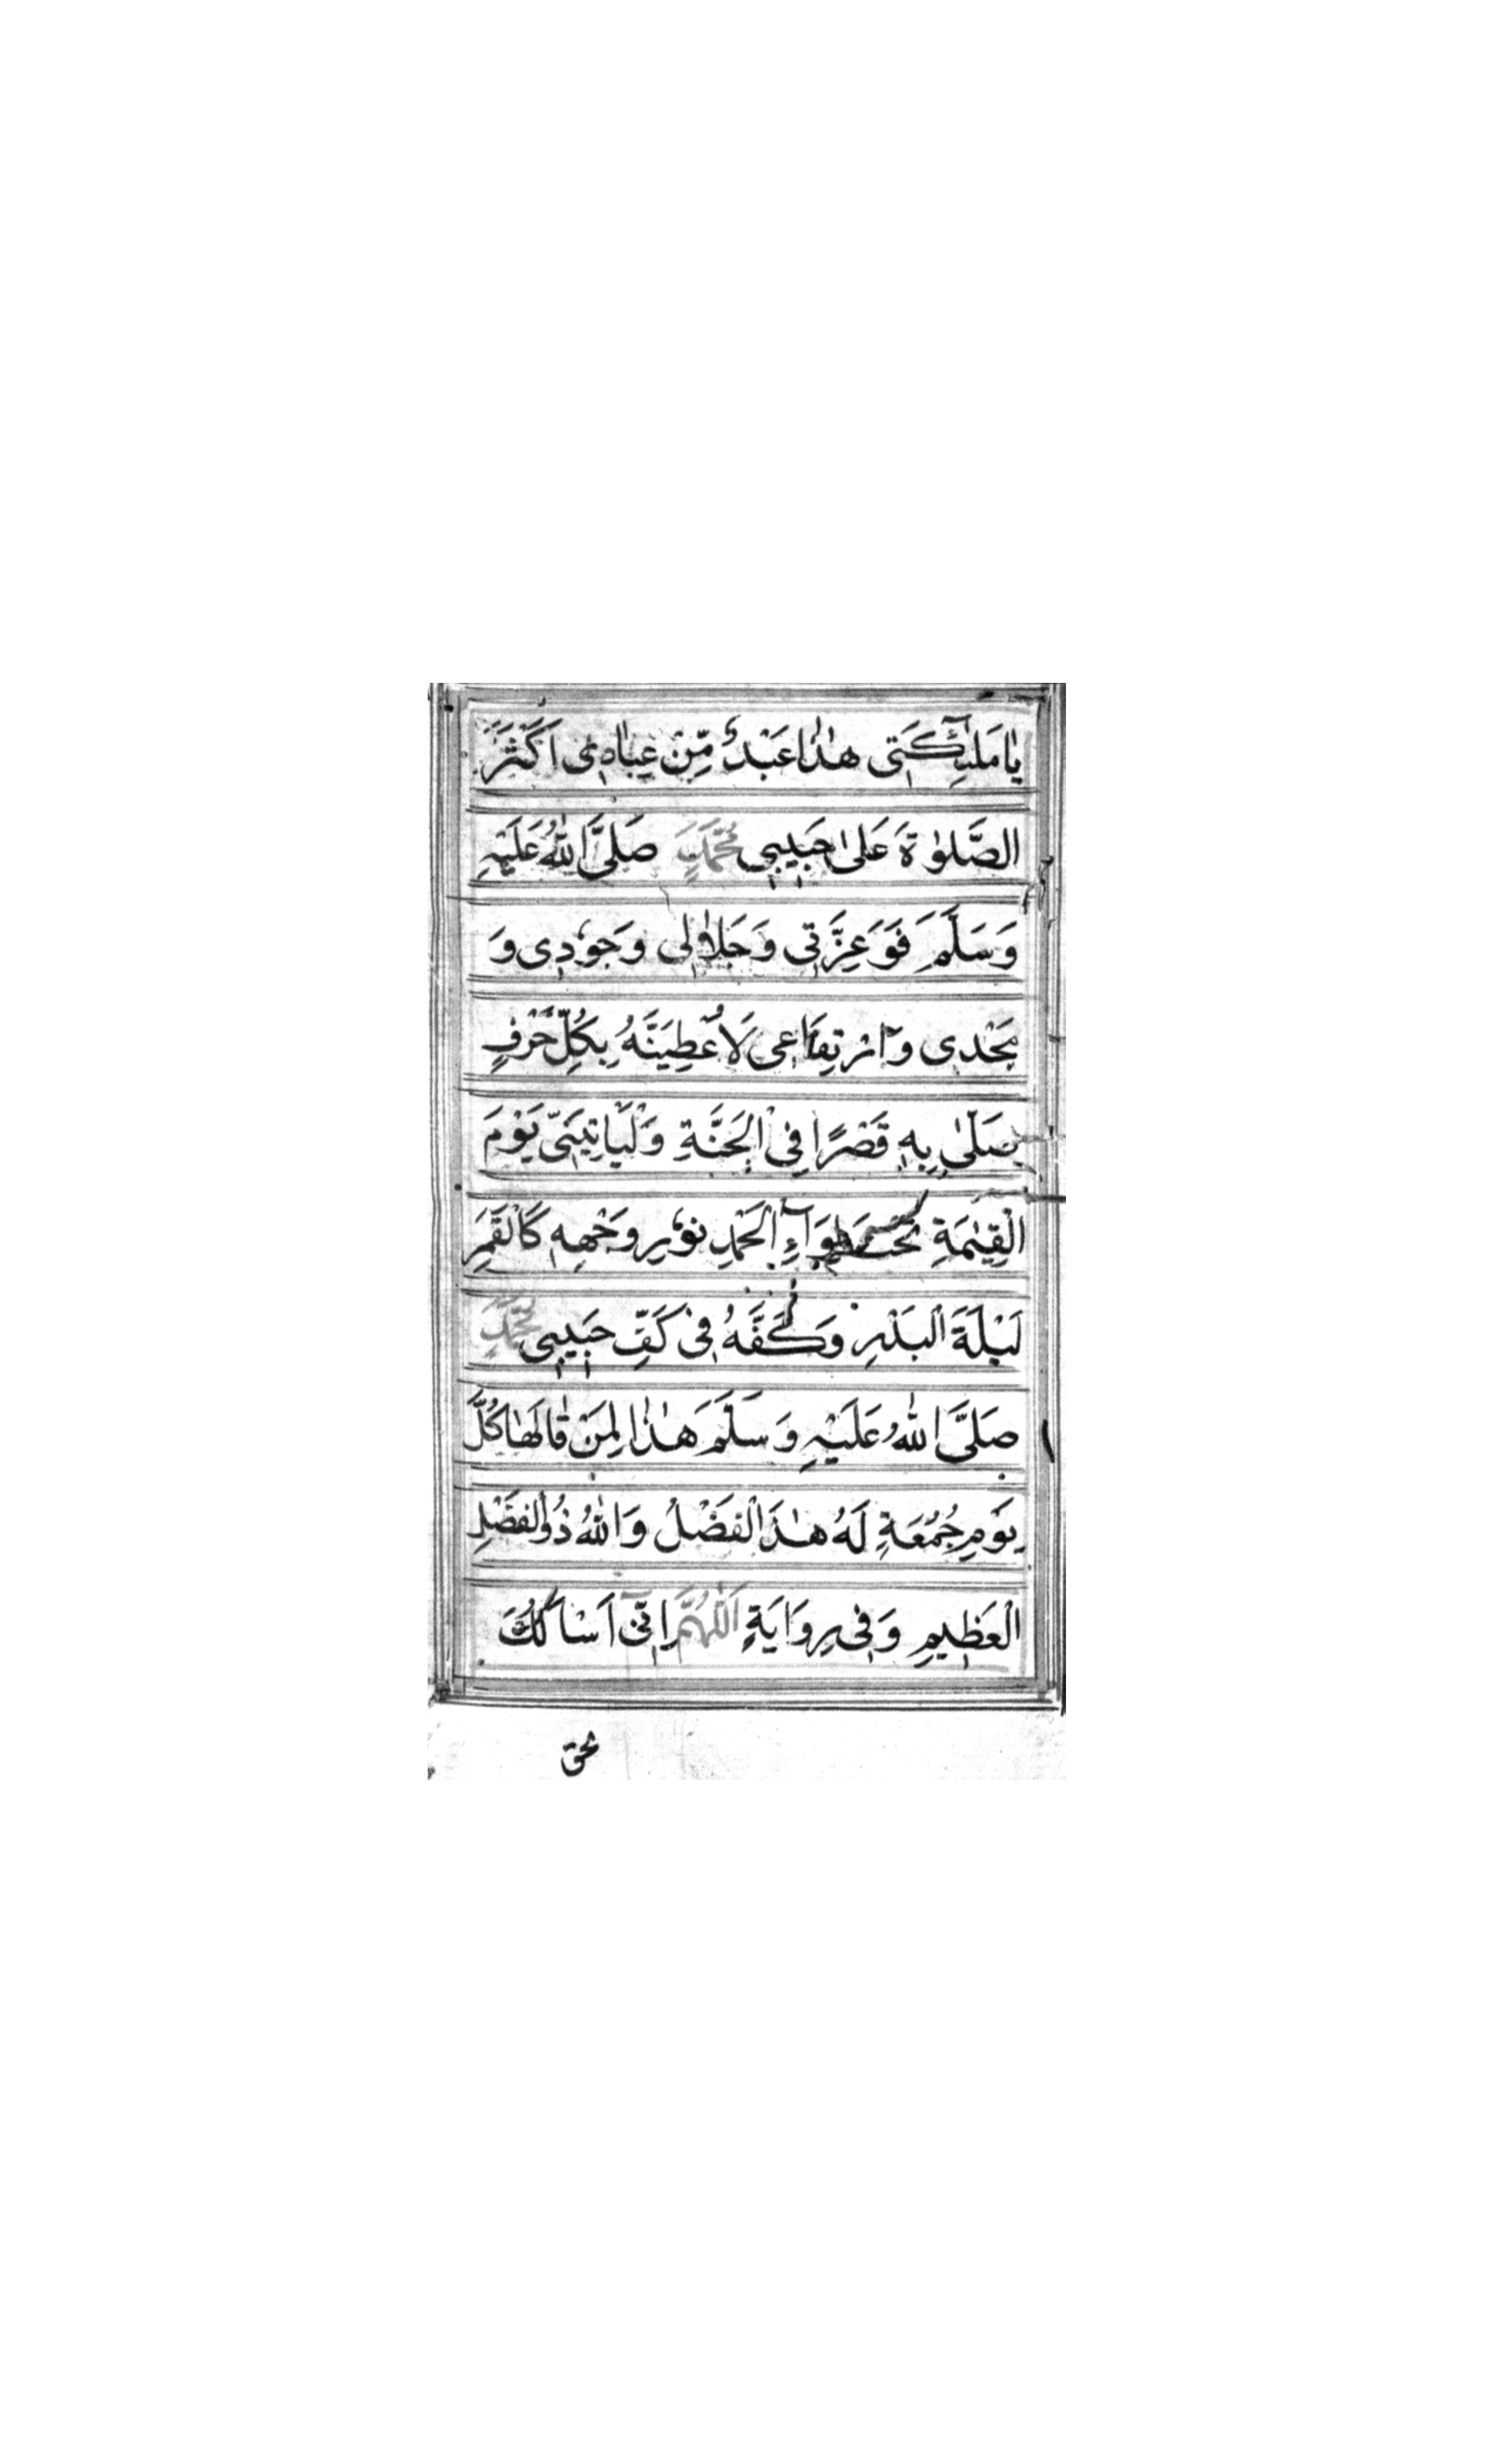 يٰا مَلٰٓئِكَتِى هٰذٰا عَبْدٌ مِّنْ عِبٰادِى اَكْثَرَ
الصَّلٰوةَ عَلىٰ حَبِيبِى مُحَمَّدٍ صَلَّى اللّٰهُ عَلَيْهِ
وَسَلَّمَ فَوَعِزَّتِى وَجَلاٰلِى وَجُوْدِى وَ
مَجْدِى وَارْتِفَاعِى لَاُعْطِيَنَّهُ بِكُلِّ حَرْفٍ
صَلّٰى بِهٖ قَصْرًا فِى الْجَنَّةِ وَلْيَاْتِيَنِّى يَوْمَ
الْقِيٰمَةِ تَحْتَ لِوَآءِ الْحَمْدِ نُوْرُ وَجْهِهٖ كَالْقَمَرِ
لَيْلَةَ الْبَدْرِ وَكَفَّهُ فِى كَفِّ حَبِيبِى مُحَمَّدٍ
صَلَّى اللّٰهُ عَلَيْهِ وَسَلَّمَ هٰذٰا لِمَنْ قٰالَهٰا كُلَّ
يَوْمِ جُمُعَةٍ لَهُ هٰذَا الْفَضْلُ وَاللّٰهُ ذُوالْفَضْلِ
الْعَظِيمِ وَفِى رِوَايَةٍ اَللّٰهُمَّ اِنِّىٓ اَسْاَلُكَ
بحق